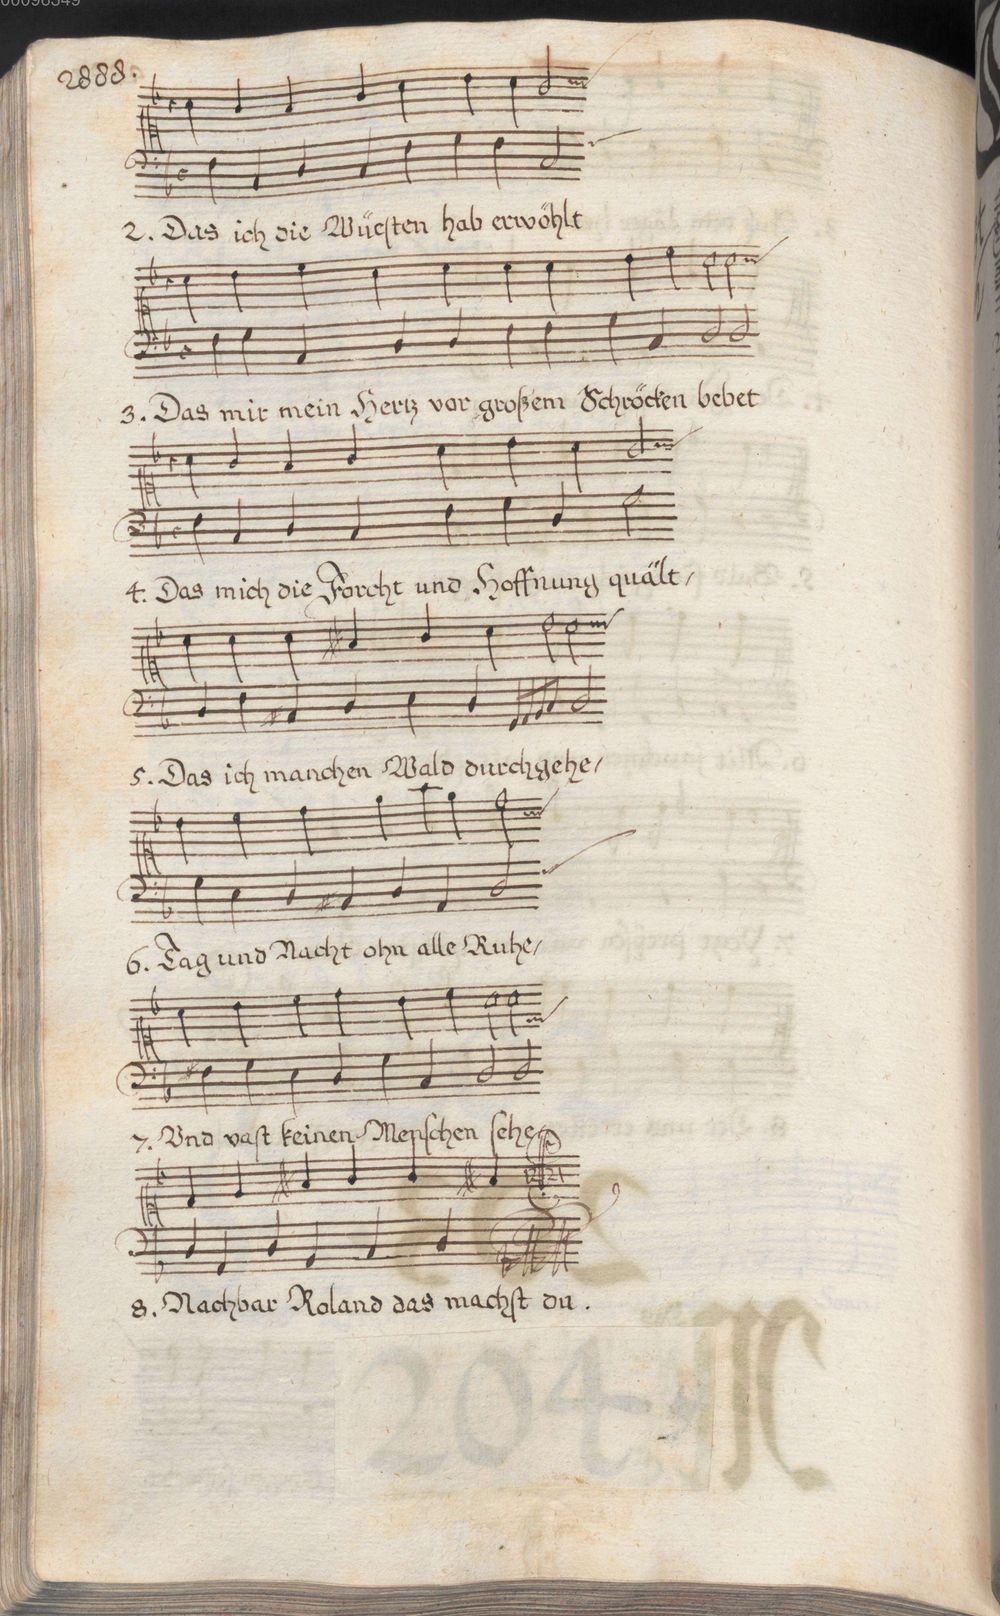 2888.
2. Das ich die Wüesten hab erwöhlt
3. Das mir mein Hertz vor großem Schröcken bebet
4. Das mich die Forcht und Hoffnung quält,
5. Das ich manchen Wald durchgehe,
6. Tag und Nacht ohn alle Ruhe,
7. Vnd vast keinen Menschen sehe,
8. Nachbar Roland das machst du.
204